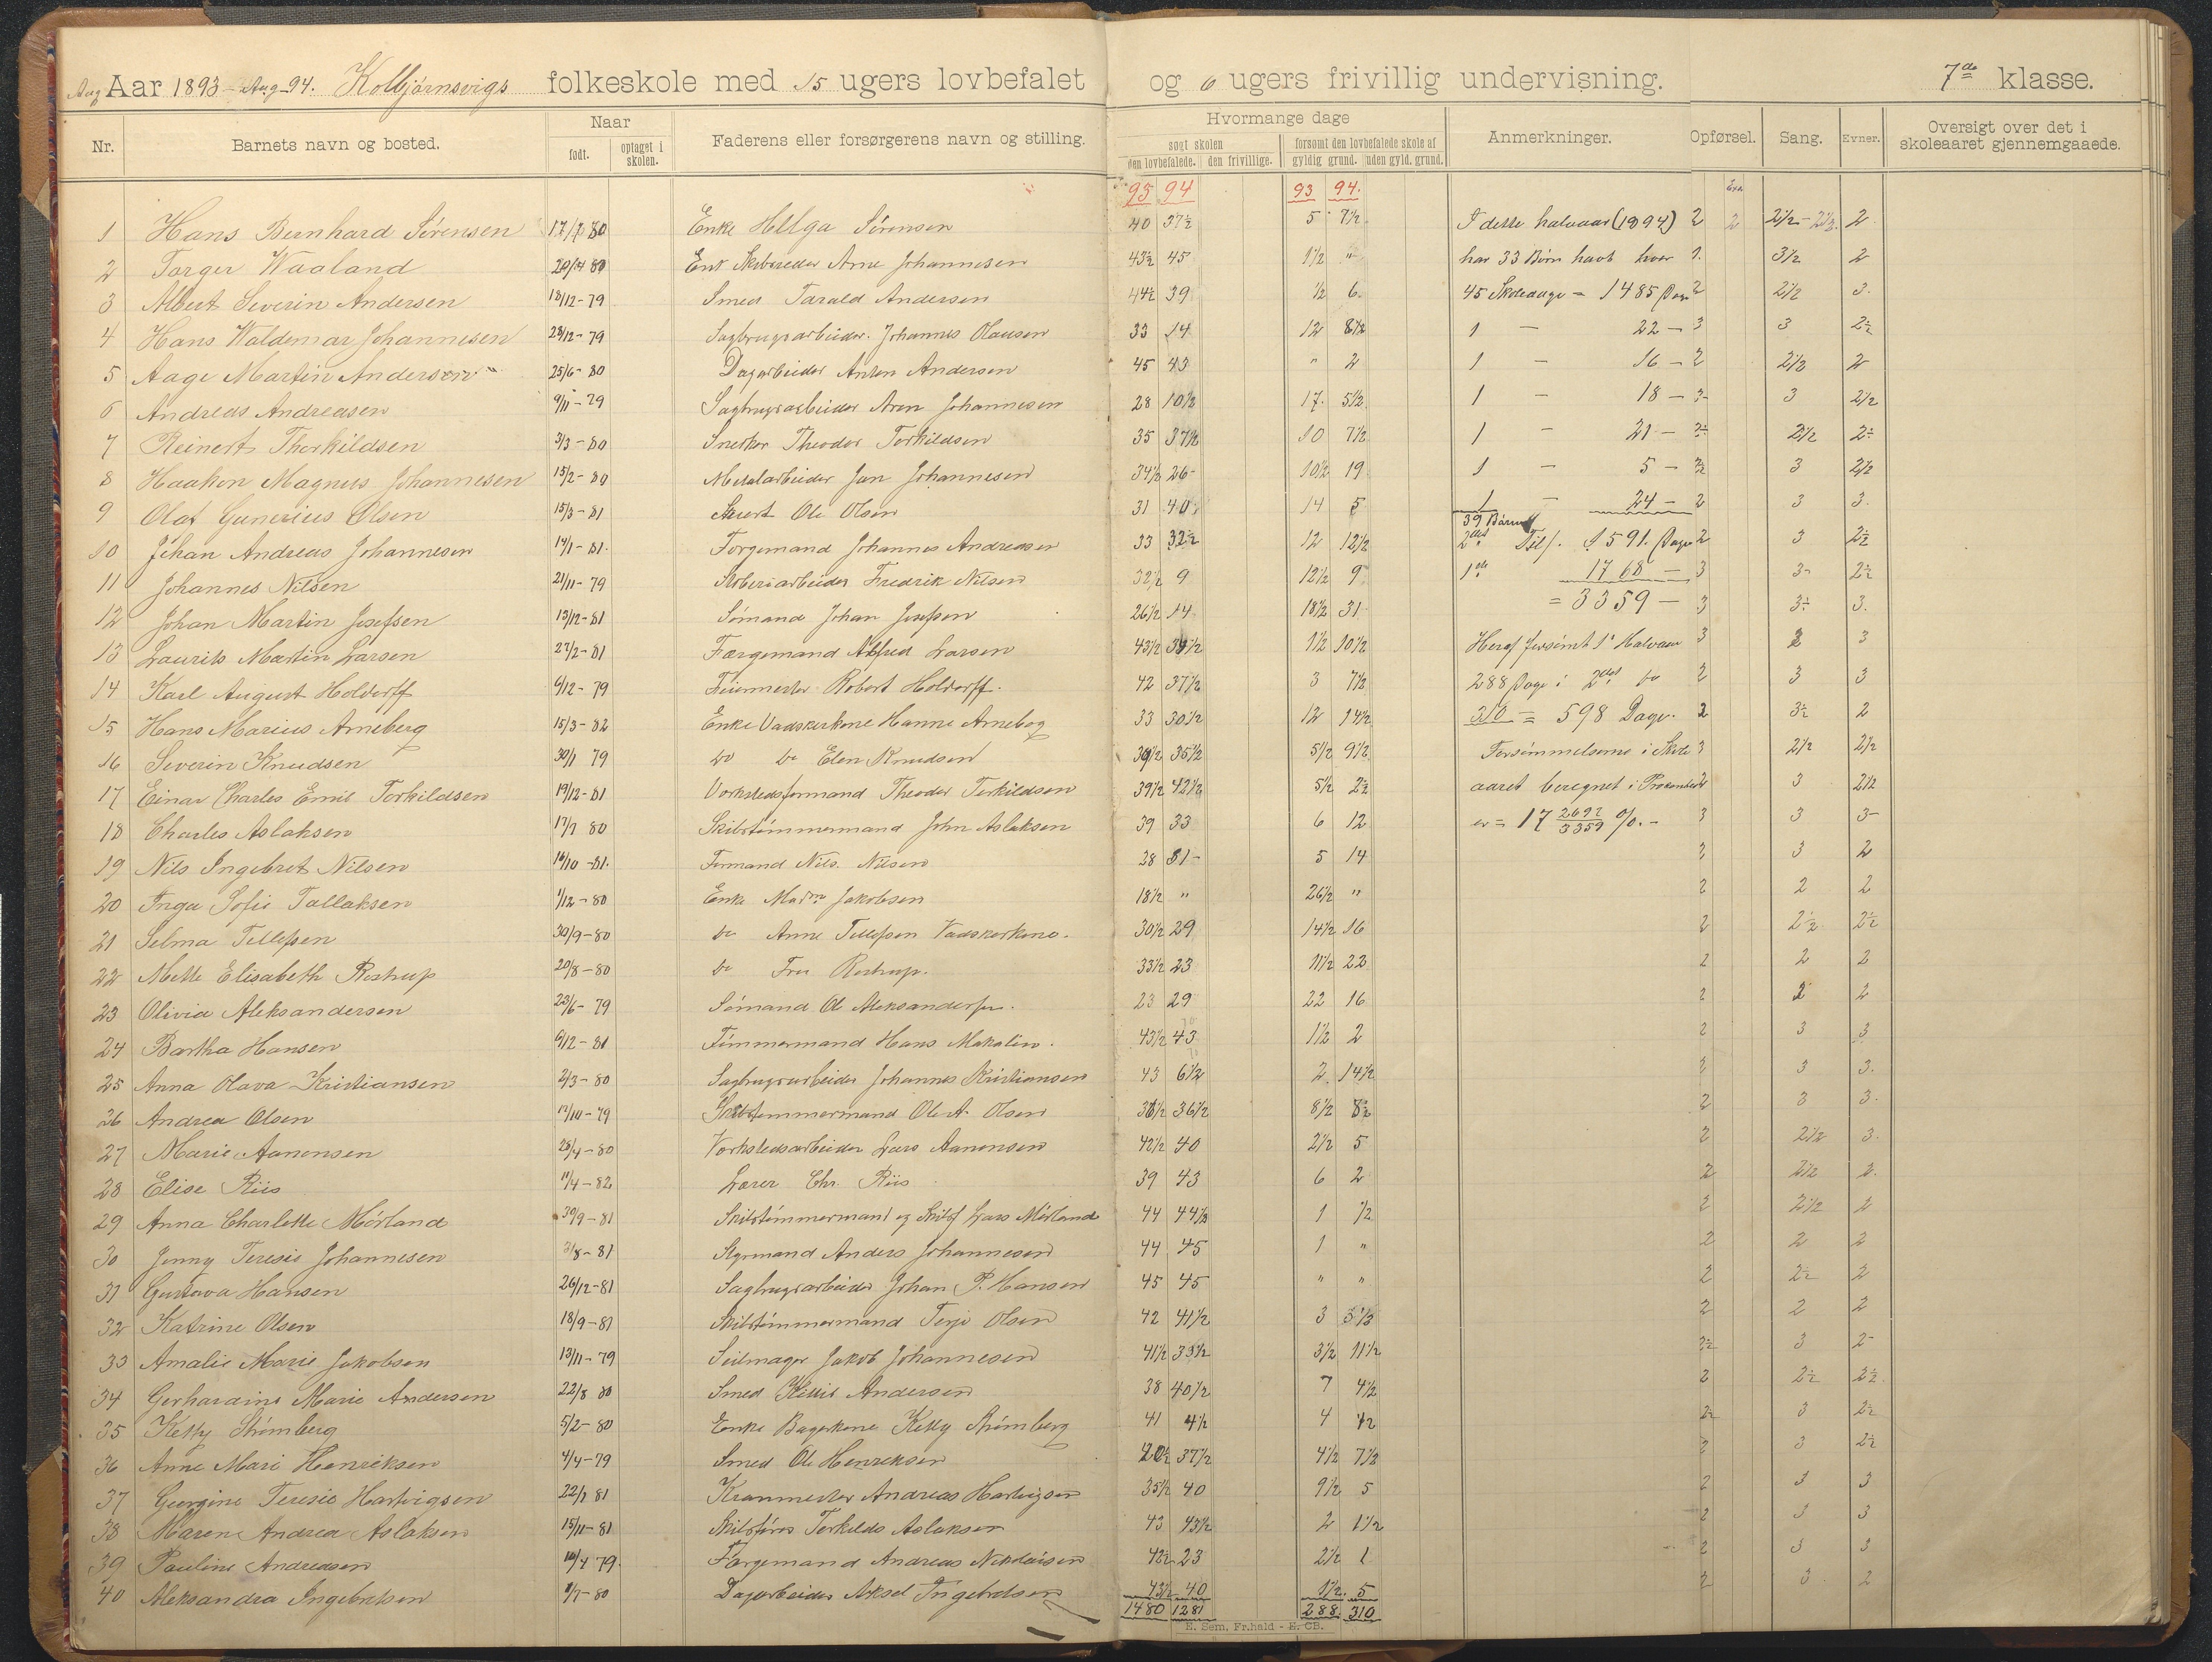 Aug Aar 1893 - Aug - 94. Kolbjørnsvigs folkeskole med 15 ugers lovbefalet og 6 ugers frivillig undervisning. 7de klasse.
Nr. Barnets navn og bosted. Naar født. optaget i skolen. Faderens eller forsørgerens navn og stilling. Hvormange dage søgt skolen den lovbefalede. den frivillige. forsømt den lovbefalede skole af gyldig grund. uden gyld. grund. Anmerkninger. Opførsel. Sang. Evner. Oversigt over det i skoleaaret gjennemgaaede.
93 94 93 94.
1 Hans Bernhard Sørensen 17/7 80 Enke Helga Sørensen 40 37½ 5 7½ I dette halvaar (1894) 2 2 2½ - 2½ 2
2 Torger Waaland 20/4 80 Skibsreder Arne Johannesen 43½ 45 1½ " har 33 Børn havt hver 1. 3½ 2
3 Albert Severin Andersen 18/12-79 Smed Tarald Andersen 44½ 39 ½ 6 45 Skoledage = 1485 Dage 2 2½ 3.
4 Hans Waldemar Johannesen 28/12-79 Sagbrugsarbeider. Johannes Olausen 33 14 12 8½ 1 — 22 — 3 3 2½
5 Aage Martin Andersen 25/6-80 Dagarbeider Anton Andersen 45 43 " 2 1 — 16 — 2 2½ 2
6 Andreas Andreasen 9/11-79 Sagbrugsarbeider Aron Johannesen 28 10½ 17. 5½ 1 — 18 — 3 3 2½
7 Reinert Thorkildsen 3/3-80 Snerker Theodor Torkildsen 35 37½ 10 7½ 1 — 21 — 2½ 2½
8 Haakon Magnus Johannesen 15/2-80 Metalarbeider Jan Johannesen 34½ 26 10½ 19 1 — 5 — 3 2½
9 Olaf Gunerius Olsen 15/3-81 Ole Olsen 31 40 14 5 1 — 24 — 2 3 3.
39 Børn
10 Johan Andreas Johannesen 14/1-81. Johannes Andreasen 33 32½ 12 12½ 2det Til/. 1591. Dage 2 3 2½
11 Johannes Nilsen 21/11-79 Fredrik Nilsen 32½ 9 12½ 9 1ste 1768 — 3 3 2½
12 Johan Martin Josefsen 13/12-81 Sømand Johan Josefsen 26½ 14 18½ 31 = 3359 — 3 3 3.
13 Laurits Martin Larsen 27/2-81 Færgemand Alfred Larsen 43½ 1½ 10½ Heraf forsømt 1ste Halvaar 3 2 3
14 Karl August Holdorff 6/12-79 Feiermester Robert Holdorff. 42 37½ 3 7½ 288 Dage i 2det do 2 3 3
15 Hans Marius Arneberg 15/3-82 Enke Vadskerkone Hanne Arneberg 33 30½ 12 14½ 310 = 598 Dage. 2 3½ 2
16 Severin Knudsen 30/1 79 do do Elen Knudsen 39½ 35½ 5½ 9½ Forsømmelserne i Skole 3 2½ 2½
17 Einar Charles Emil Torkildsen 19/12-81 Verkstedsformand Theodor Torkildsen 39½ 42½ 5½ 2½ aaret beregnet i Procenter 2 3 2½
18 Charles Aslaksen 17/7 80 Skibstømmermand John Aslaksen 39 33 6 12 er = 17 2697/3359 %. - 3 3 3
19 Nils Ingebret Nilsen 16/10-81. Nils Nilsen 28 31 5 14 2 3 2
20 Inga Sofie Tallaksen 1/12-80 Enke Jakobsen 18½ " 26½ " 2 2 2
21 Selma Tellefsen 30/9-80 do Anne Tellefsen Vadskerkone. 30½ 29 14½ 16 2 2½ 2½
22 Mette Elisabeth Rostrup 20/8-80 do Fru Rostrup. 33½ 23 11½ 22 2 2 2
23 Olivia Aleksandersen 23/6-79 Sømand Ole Aleksandersen. 23 29 22 16 2 2 2
24 Bertha Hansen 6/12-81 Tømmermand Hans Makalin. 43½ 43 1½ 2 2 3 3
25 Anna Olava Kristiansen 2/3-80 Sagbrugsarbeider Johannes Kristiansen 43 6½ 2 14½ 2 3 3.
26 Andrea Olsen 17/10-79 Skibstømmermand Ole A. Olsen 36½ 36½ 8½ 8½ 2 3 3.
27 Marie Aanonsen 28/4-80 Verkstedsarbeider Lars Aanonsen 42½ 40 2½ 5 2 2½ 3.
28 Elise Riis 11/4-82 Lærer Chr. Riis 39 43 6 2 2 2½ 2.
29 Anna Charlotte Mørland 30/9-81 Skibstømmermand og Lars Mørland 44 44½ 1 ½ 2 2½ 2
30 Jenny Teresie Johannesen 31/8-81 Styrmand Anders Johannesen 44 45 1 " 2 2 2
31 Gustava Hansen 26/12-81 Sagbrugsarbeider Johan P. Hansen 45 45 " " 2 2½ 2
32 Katrine Olsen 18/9-81 Skibstømmermand Terje Olsen 42 41½ 3 3½ 2 2 2
33 Amalie Marie Jakobsen 13/11-79 Seilmager Jakob Johannesen 41½ 33½ 3½ 11½ 2½ 3 2
34 Gerhardine Marie Andersen 22/8 80 Smed Andersen 38 40½ 7 4½ 2 2½ 2½
35 Ketty Strømberg 5/2-80 Enke Bagerkone Ketty Strømberg 41 4½ 4 ½ 2½ 3 2½
36 Anne Mari Henriksen 4/4-79 Smed Ole Henriksen 37½ 4½ 7½ 2 3 2½
37 Georgine Teresie Hartvigsen 22/7 81 Kranmester Andreas Hartvigsen 35½ 40 9½ 5 2 3 3
38 Maren Andrea Aslaksen 15/11-81 Skibsfører Torkilds Aslaksen 43 43½ 2 1½ 2 3 3
39 Pauline Andreasen 10/4 79. Færgemand Andreas Nikolaisen 42½ 23 2½ 1 2 3 3
40 Aleksandra Ingebretsen 8/7-80 Dagarbeider Aksel Ingebretsen 43½ 40 1½. 5 2 3 2
1480 1281 288 310
E. Sem, Fr.hald - E. CB.